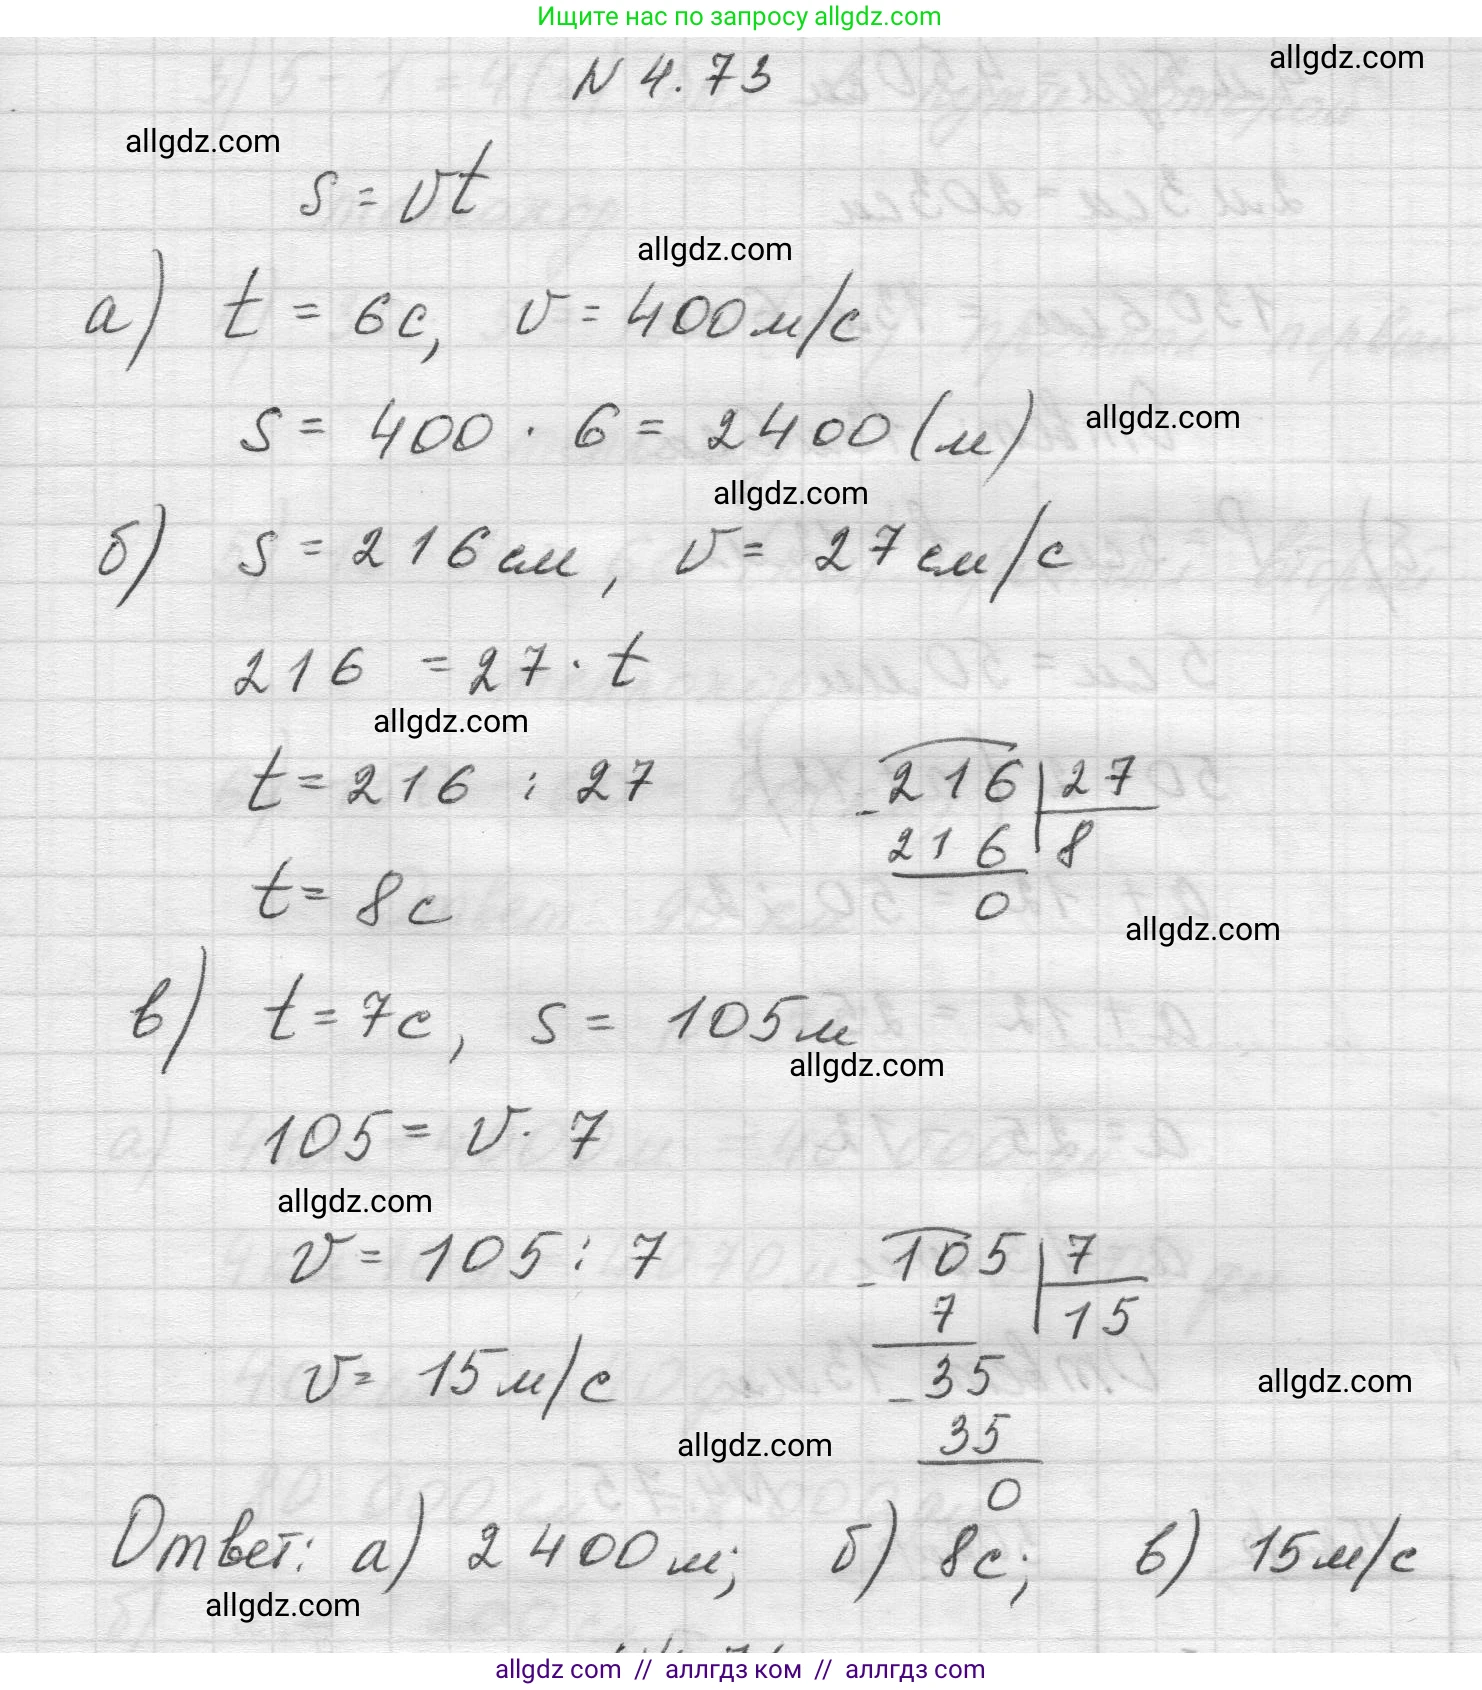 Ищите нас по запросу allgdz.com
allgdz.com
N 4.73
allgdz.com
s = vt
allgdz.com
а) t = 6с, v = 400м/с
s = 400 · 6 = 2400 (м)
allgdz.com
allgdz.com
б) s = 216см, v = 27см/с
216 = 27 · t
allgdz.com
t = 216 : 27
- 216 | 27
216 8
0
t = 8с
allgdz.com
в) t = 7с, s = 105м
allgdz.com
105 = v · 7
allgdz.com
v = 105 : 7
- 105 | 7
7 15
- 35
35
0
v = 15м/с
allgdz.com
allgdz.com
Ответ: а) 2400м; б) 8с; в) 15м/с
allgdz.com
allgdz com // аллгдз ком // аллгдз com